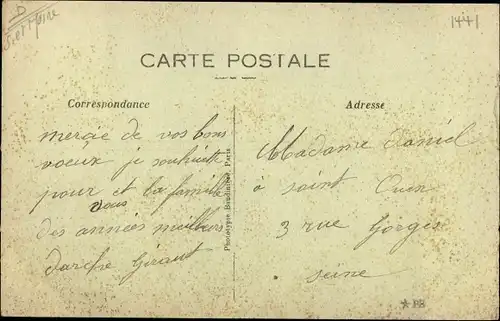 1441
CARTE POSTALE
Correspondance
Adresse
mercie de vos bons
voeux je souhaite
pour et la famille
vous
des années meilleurs
Madame Daniel
à saint Ouen
3 rue Gorges
seine
Phototypie Baudinière, Paris
* PB